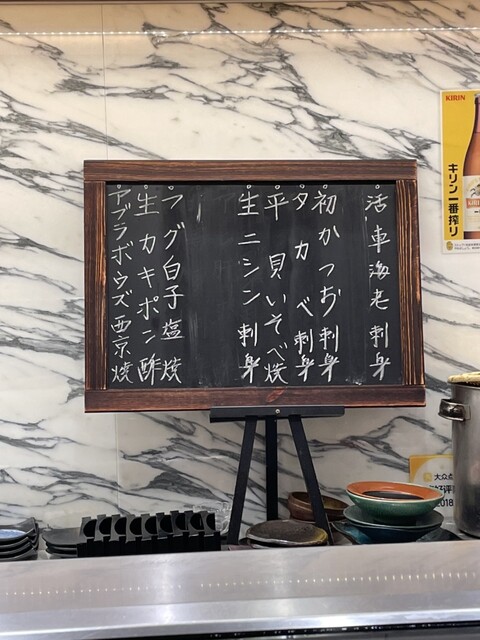 活車海老刺身
初かつお刺身
タカベ刺身
平貝いそべ焼
生ニシン刺身
フグ白子塩焼
生カキポン酢
アブラボウズ西京焼
KIRIN
キリン一番搾り
大众点
好评
2018